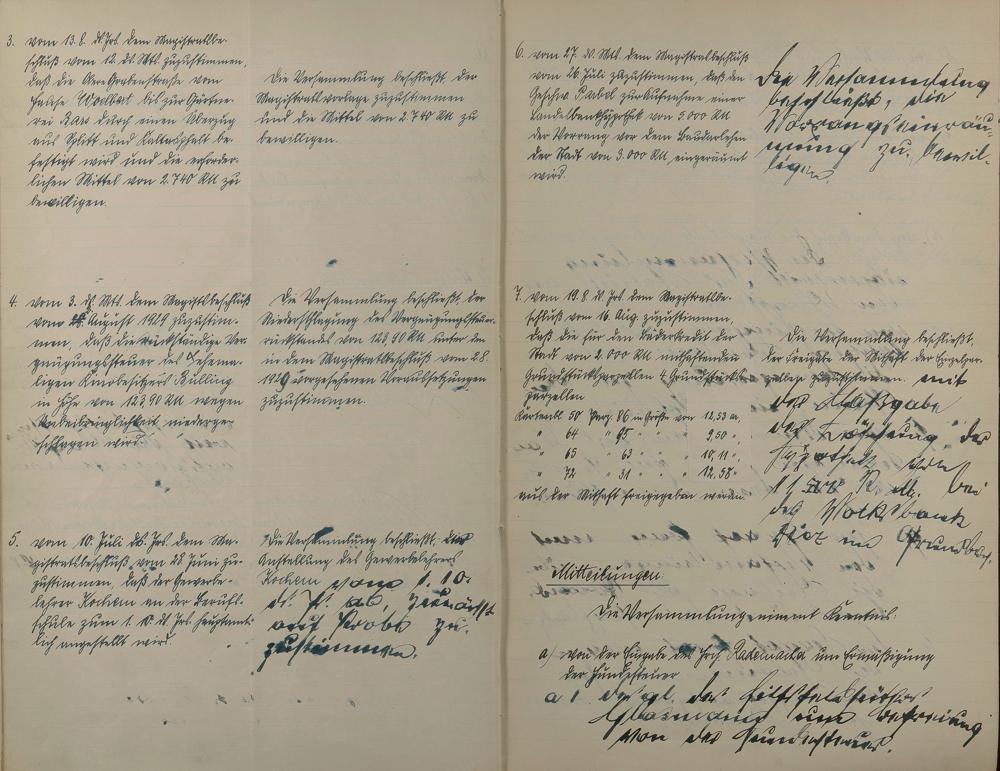 3. vom 13.8. ds. Jrs. dem Magistratsbe-
schluß vom 12. ds. Mts. zuzustimmen,
daß die Obere Grabenstraße vom
Hause Woelbert bis zur Gärtne-
rei durch einen Überzug
aus Splitt und Kaltasphalt be-
festigt wird und die erforder-
lichen Mittel von 2.740 RM zu
bewilligen.
Die Versammlung beschließt, der
Magistratsvorlage zuzustimmen
und die Mittel von 2740 RM zu
bewilligen.
4. vom 3. ds. Mts. dem Magistratsbeschluß
vom August 1929 zuzustim-
men, daß die rückständige Ver-
gnügungssteuer des ehema-
ligen Kinobesitzers Külling
in Höhe von 123,90 RM wegen
Unbeibringlichkeit niederge-
schlagen wird.
Die Versammlung beschließt, der
Niederschlagung des Vergnügungssteuer-
rückstands von 123,90 RM unter den
in dem Magistratsbeschluß vom 28.
1929 vorgesehenen Voraussetzungen
zuzustimmen.
5. vom 10. Juli ds. Jrs. dem Ma-
gistratsbeschluß vom 28. Juni zu-
zustimmen, daß der Gewerbe-
lehrer Kochem an der Berufs-
schule zum 1.10. ds. Jrs. hauptamt-
lich angestellt wird.
Die Versammlung beschließt, der
Anstellung des Gewerbelehrers
Kochem vom 1.10.
ds. Js. ab, zunächst
auf Probe zu-
zustimmen.
6. vom 27. ds. Mts. dem Magistratsbeschluß
vom 26. Juli zuzustimmen, daß den
Geschw. zur Aufnahme einer
Landesbankhypothek von 5.000 RM
der Vorrang vor dem Baudarlehen
der Stadt von 3.000 RM eingeräumt
wird.
Die Versammlung
beschließt, die
Vorrangseinräu-
mung zu bewil-
ligen.
7. vom 19.8. ds. Jrs. dem Magistratsbe-
schluß vom 16. Aug. zuzustimmen,
daß die für den Bäderkredit der
Stadt von 2.000 RM mithaftenden
Grundstücksparzellen 4 Grundstücks-
parzellen
Kartenbl. 50 Parz. 86 in Größe von 12,53 a,
" 64 " 95 " " 9,50 ",
" 65 " 63 " " 10,11 ",
" 72 " 31 " " 12,58 "
aus der Mithaft freigegeben werden.
Die Versammlung beschließt,
der Freigabe der Mithaft der Einzelpar-
zellen zuzustimmen mit
der Maßgabe
der Löschung der
Hypothek von
RM. bei
der Volksbank
Diez im Grundbuch.
Mitteilungen.
Die Versammlung nimmt Kenntnis:
a/ von der Eingabe des Rademacher um Ermäßigung
der Hundesteuer
a1 desgl. des Hilfsfeldhüters
um Befreiung
von der Hundesteuer.